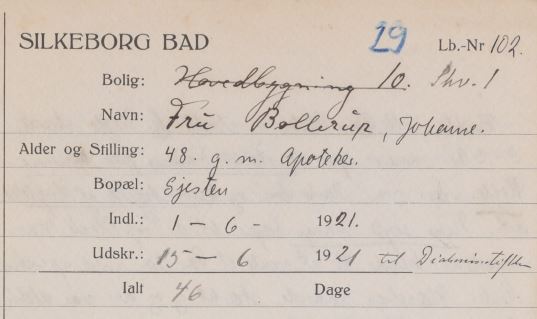 SILKEBORG BAD 29 Lb.-Nr 102.
Bolig: Hovedbygning 10. Shv. 1
Navn: Fru Bollerup, Johanne.
Alder og Stilling: 48. g. m. Apoteker.
Bopæl: Gjesten
Indl.: 1 - 6 - 1921.
Udskr.: 15 - 6 1921 til
Ialt 46 Dage